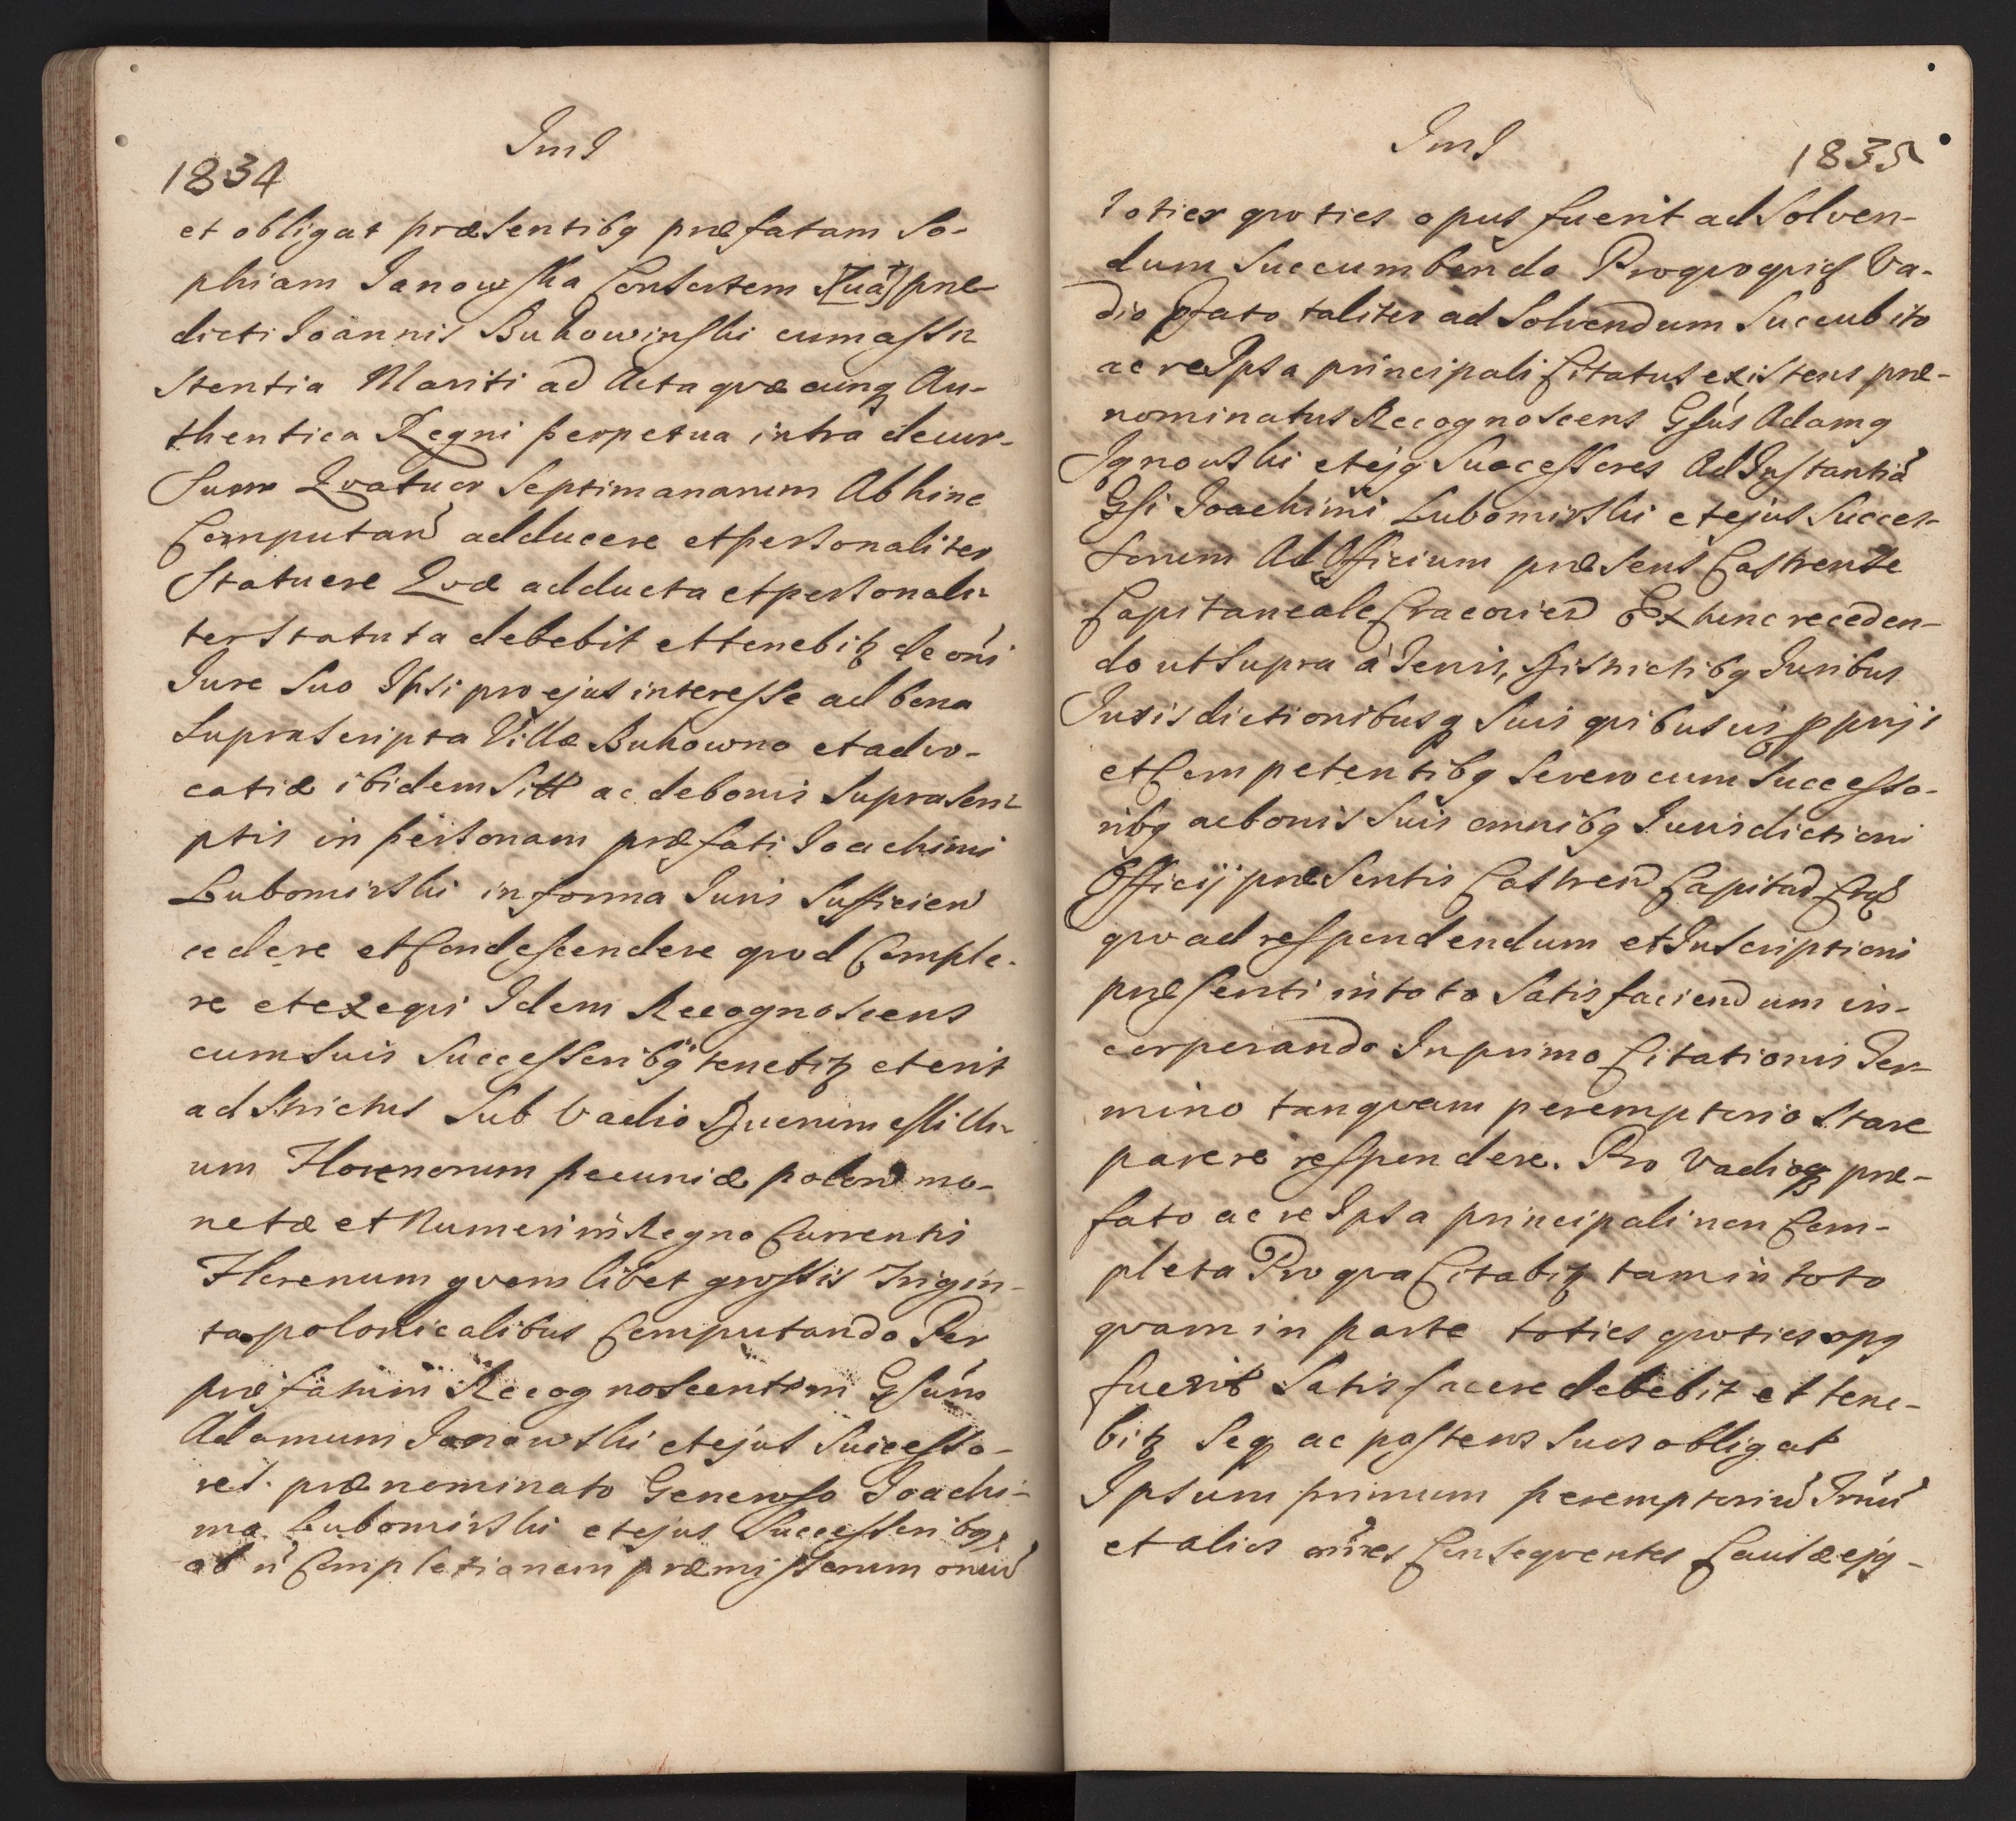 1834
et obligat præsentibq præfatam So-
phiam Janowska Consortem [suã] præ
dicti Joannis Bukowinski cum assi-
stentia Mariti ad Acta quæcunq Au-
thentica Regni perpetua intra decur-
sum Qvatuor Septimanarum Abhinc
Computañ adducere et personaliter
Statuere Qvæ adducta et personali-
ter statuta debebit et tenebitz de oñi
Jure Suo Ipsi pro ejus interesse ad bona
Suprascripta Villæ Bukowno et advo-
catiæ ibidem Sitt ac de bonis Suprascri-
ptis in personam præfati Joachimi
Lubomirski in forma Juris Sufficien
cedere et Condescendere qvod Comple-
re et exeqvi Idem Recognoscens
cum Suis Successoribq tenebitz et erit
adstrictus Sub Vadio Milli-
um Florenorum pecuniæ polon mo-
netæ et Numeri in Regno Currentis
Florenum qvemlibet grossis Trigin-
ta polonicalibus Computando Per
præfatum Recognoscentem Gsum
Adamum Janowski et ejus Successo-
res prænominato Generoso Joachi-
mo Lubomirski et ejus Successoribq
ob ñ Completionem præmissorum
1835
toties qvoties opus fuerit ad Solven-
dum Succumbendo Pro qvo qvid Va-
dio pfato taliter ad Solvendum Succubito
ac re Ipsa principali Citatus existens præ-
nominatus Recognoscens Gsus Adamq
Janowski et ejq Successores Ad Instantiã
Gsi Joachimi Lubomirski et ejus Succes-
sorum Ad Officium præsens Castrense
Capitaneale Cracovien Ex hinc receden-
do ut Supra à Terris, Districtibq Juribus
Jurisdictionibusq Suis qvibusvis pprijs
et Competentibq Se vero cum Successo-
ribq ac bonis Suis omnibq Jurisdictioni
Officij præsentis Castren Capitan Crac
qvo ad respondendum et Inscriptioni
præsenti in toto Satisfaciendum in-
corporando In primo Citationis Ter-
mino tanqvam peremptorio Stare
parere respondere. Pro Vadioq præ-
fato ac re Ipsa principali non Com-
pleta Pro qva Citabitz tam in toto
qvam in parte toties qvoties opq
fuerit Satisfacere debebit et tene-
bitz Seq ac posteros Suos obligat
Ipsum primum peremptoriũ Trnũ
et alios oñes Conseqventes Causæ ejq-